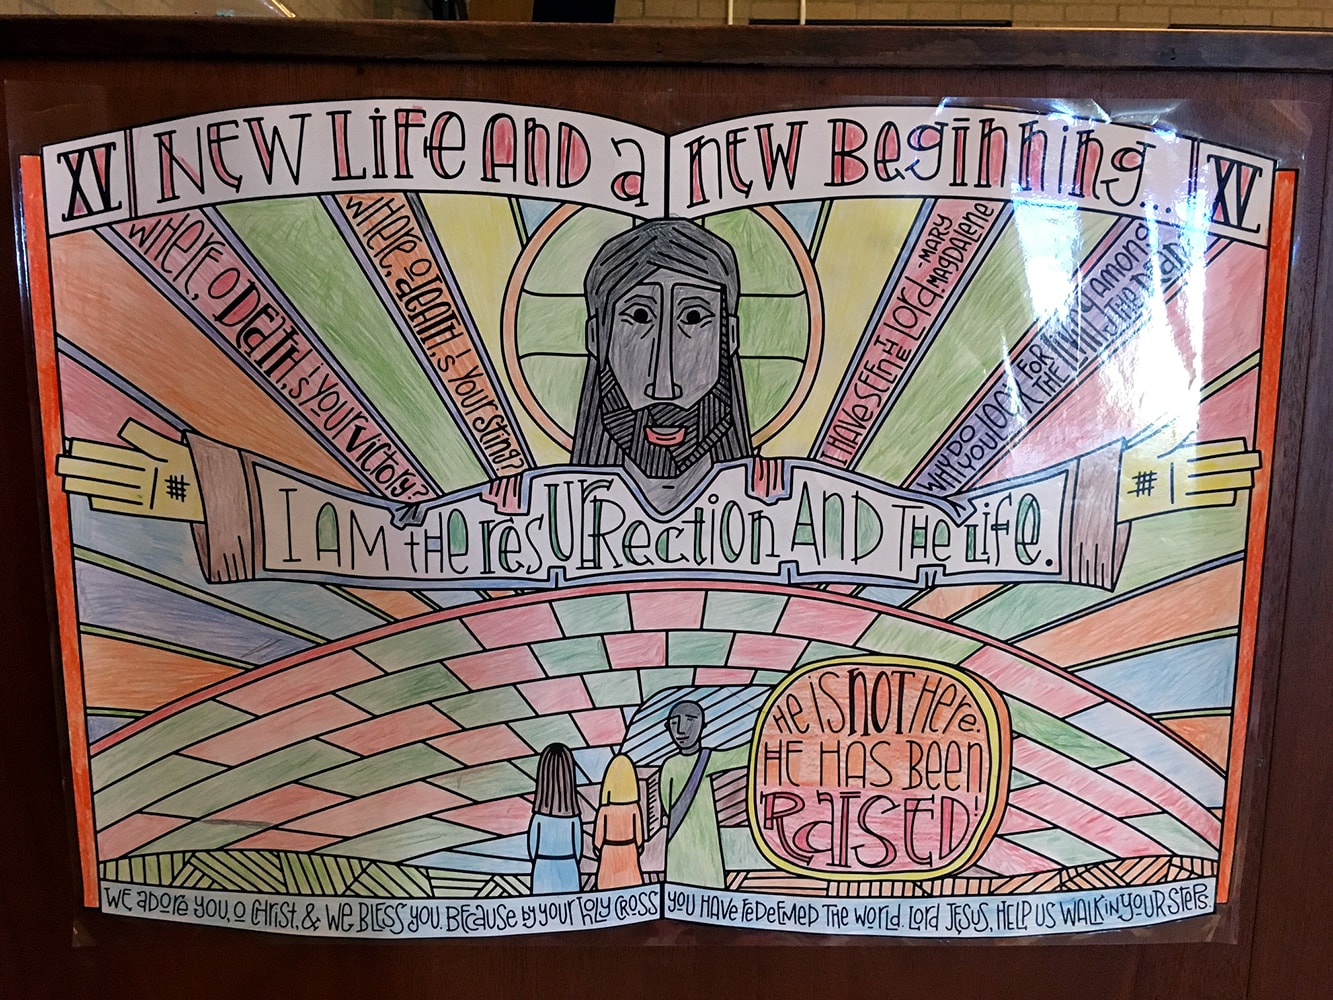 XV NEW LIFE AND a NEW BEGINNING... XV
WHERE, O DEATH, IS YOUR VICTORY?
WHERE, O DEATH, IS YOUR STING?
I HAVE SEEN THE LORD -MARY MAGDALENE
WHY DO YOU LOOK FOR THE LIVING AMONG THE DEAD
I AM THE RESURRECTION AND THE LIFE.
HE IS NOT HERE.
HE HAS BEEN
RAISED!
WE ADORE YOU, O CHRIST, & WE BLESS YOU. BECAUSE BY YOUR HOLY CROSS YOU HAVE REDEEMED THE WORLD. LORD JESUS, HELP US WALK IN YOUR STEPS.